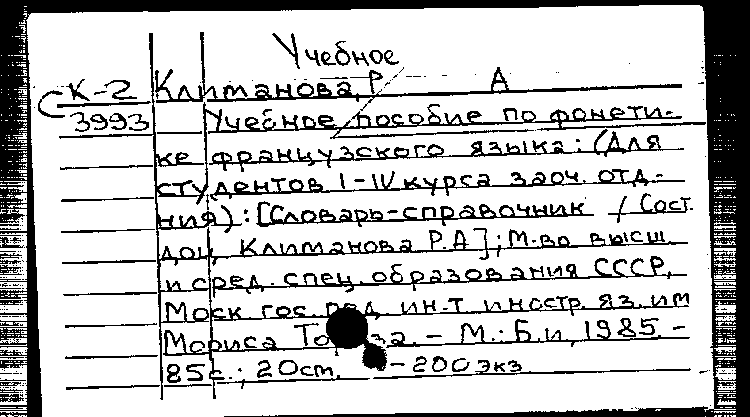 Учебное
К-2 Климанова, Р А
3993 Учебное пособие по фонети-
ке французского языка: (Для
студентов I-IV курса заоч. отд-
ния): [Словарь-справочник / Сост.
доц. Климанова Р.А]; М-во высш.
и сред. спец. образования СССР,
Моск гос. пед. ин-т иностр. яз. им
Мориса Тореза. - М.: Б.и, 1985. -
85с.; 20см. - 200 экз